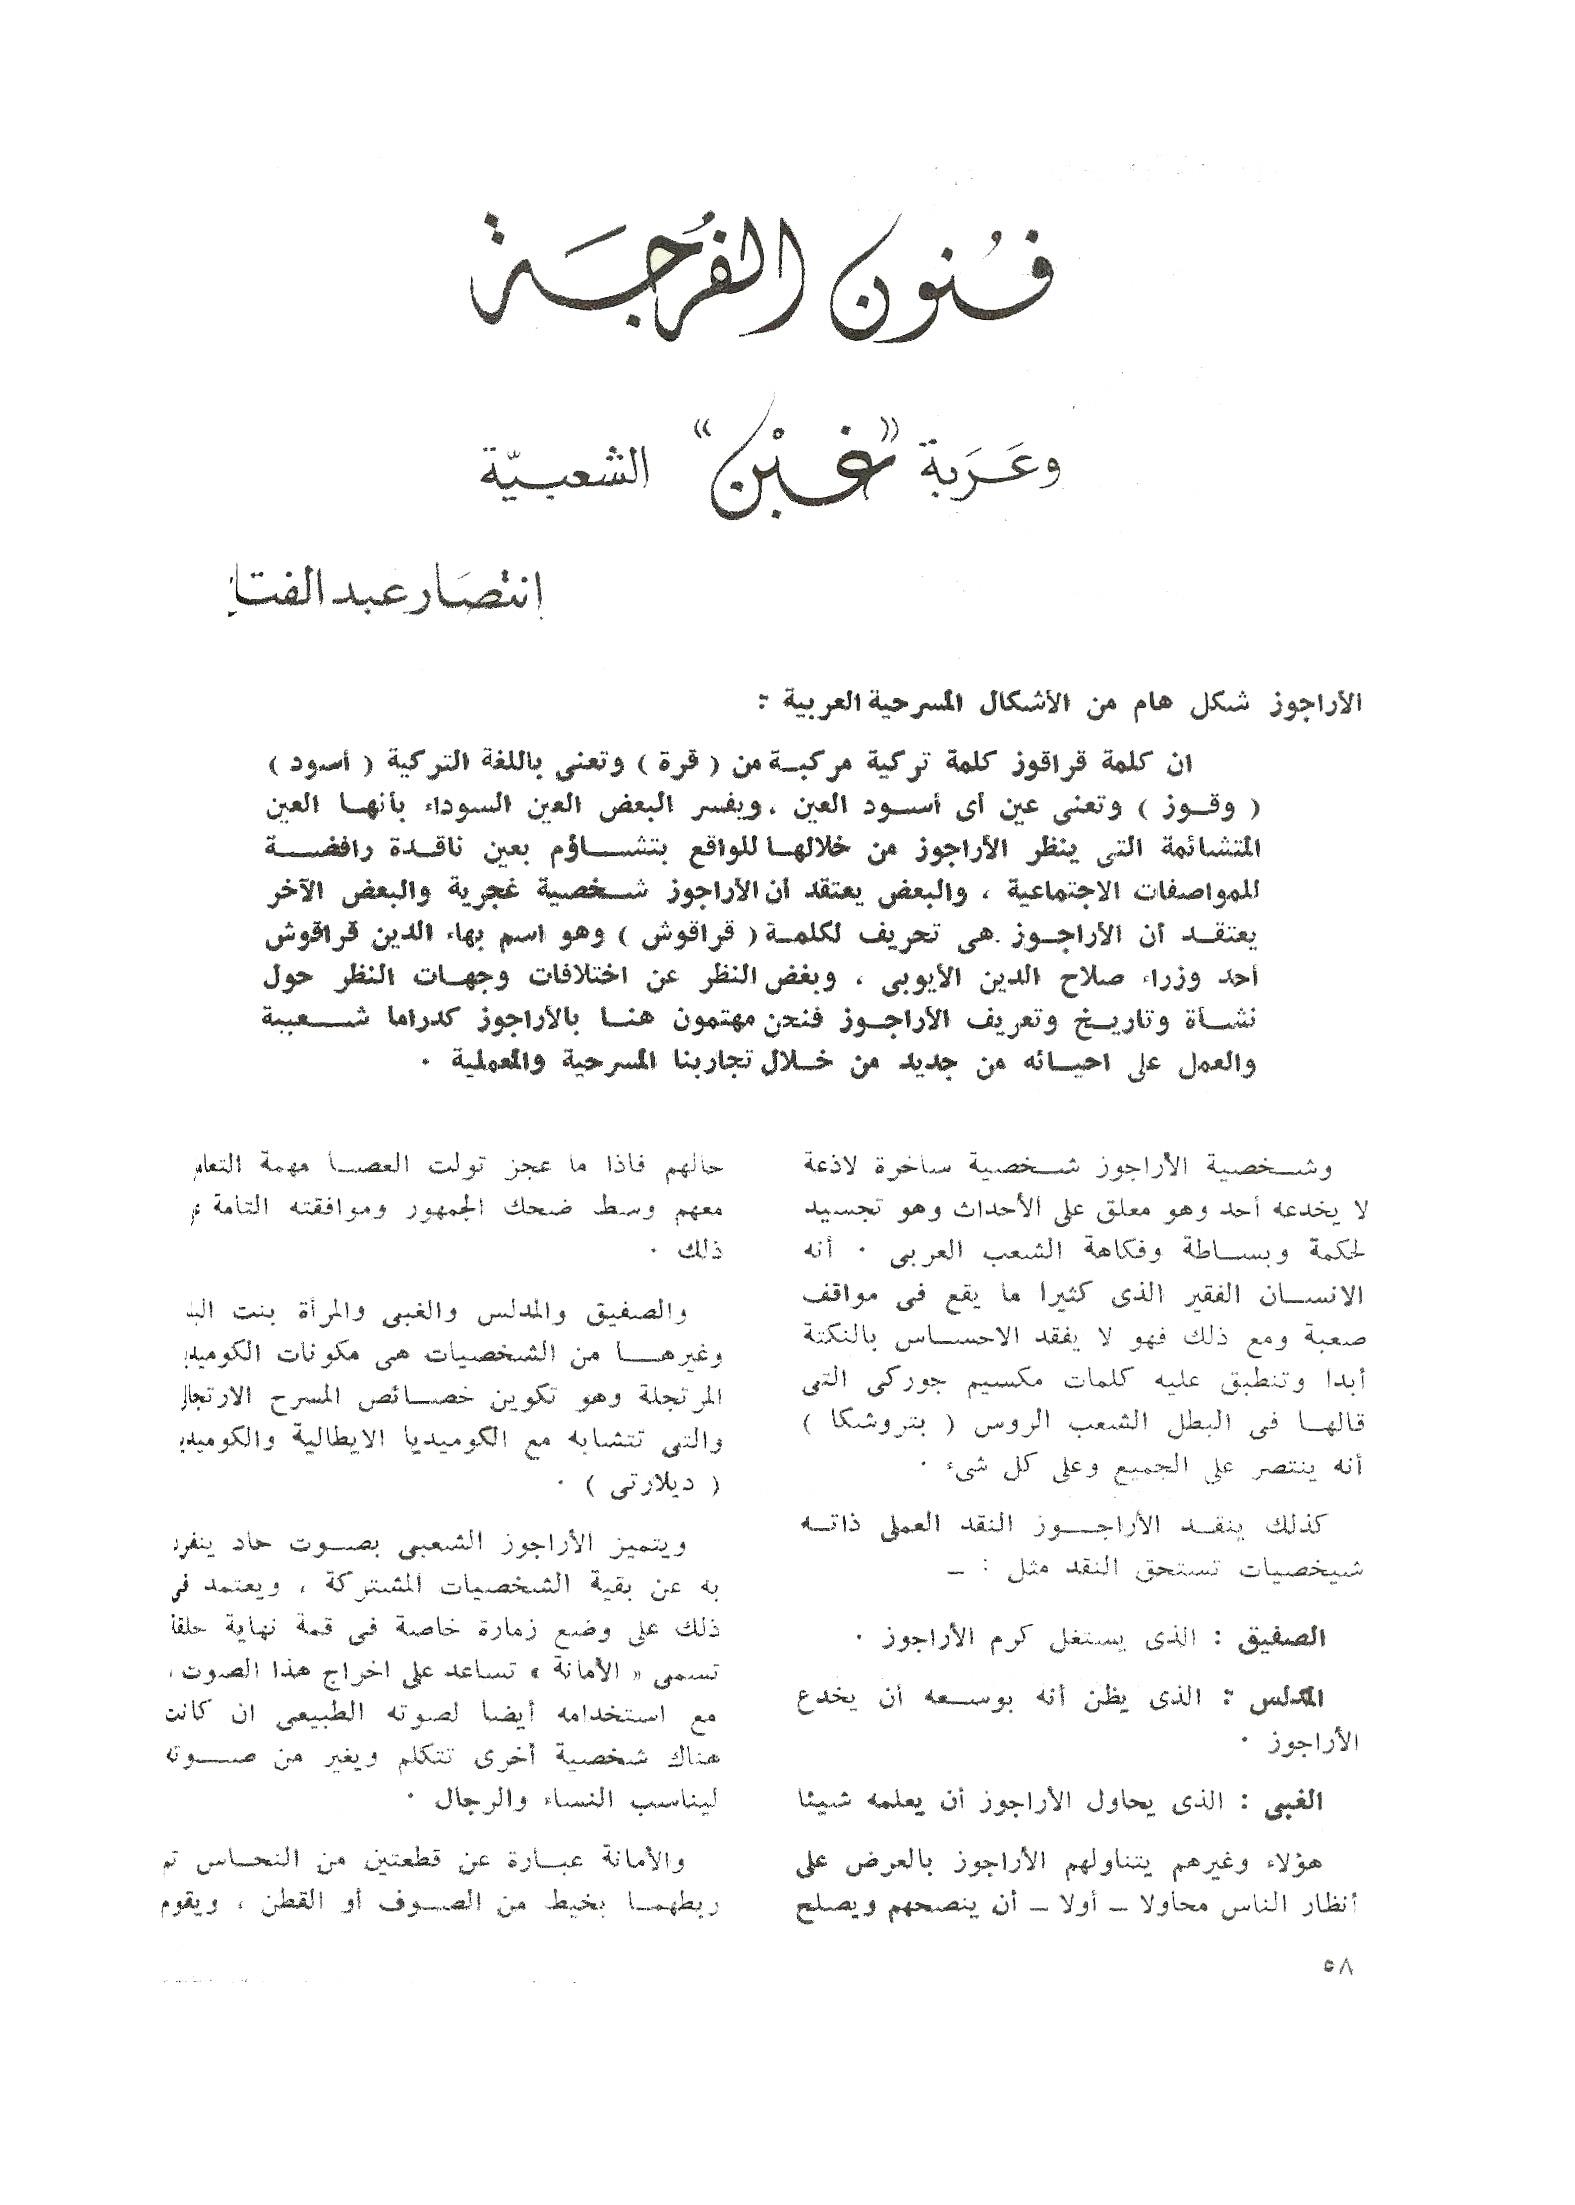 فُنون الفُرجَة
وعَرَبة "غبْن" الشعبيّة
انتصَار عبد الفتا
الأراجوز شكل هام من الأشكال المسرحية العربية :
ان كلمة قراقوز كلمة تركية مركبة من ( قرة ) وتعنى باللغة التركية ( أسود )
( وقوز ) وتعنى عين أى أسود العين ، ويفسر البعض العين السوداء بأنها العين
المتشائمة التى ينظر الأراجوز من خلالها للواقع بتشاؤم بعين ناقدة رافضة
للمواصفات الاجتماعية ، والبعض يعتقد أن الأراجوز شخصية غجرية والبعض الآخر
يعتقد أن الأراجوز هى تحريف لكلمة ( قراقوش ) وهو اسم بهاء الدين قراقوش
أحد وزراء صلاح الدين الأيوبى ، وبغض النظر عن اختلافات وجهات النظر حول
نشأة وتاريخ وتعريف الأراجوز فنحن مهتمون هنا بالأراجوز كدراما شعبية
والعمل على احيائه من جديد من خلال تجاربنا المسرحية والمعملية .
وشخصية الأراجوز شخصية ساخرة لاذعة
لا يخدعه أحد وهو معلق على الأحداث وهو تجسيد
لحكمة وبساطة وفكاهة الشعب العربى . أنه
الانسان الفقير الذى كثيرا ما يقع فى مواقف
صعبة ومع ذلك فهو لا يفقد الاحساس بالنكتة
أبدا وتنطبق عليه كلمات مكسيم جوركى التى
قالها فى البطل الشعب الروس ( بتروشكا )
أنه ينتصر على الجميع وعلى كل شىء .
كذلك ينقد الأراجوز النقد العملى ذاته
شيخصيات تستحق النقد مثل : ـ
الصفيق : الذى يستغل كرم الأراجوز .
المدلس : الذى يظن أنه بوسعه أن يخدع
الأراجوز .
الغبى : الذى يحاول الأراجوز أن يعلمه شيئا
هؤلاء وغيرهم يتناولهم الأراجوز بالعرض على
أنظار الناس محاولا ـ أولا ـ أن ينصحهم ويصلح
حالهم فاذا ما عجز تولت العصا مهمة التعام
معهم وسط ضحك الجمهور وموافقته التامة ع
ذلك .
والصفيق والمدلس والغبى والمرأة بنت البل
وغيرها من الشخصيات هى مكونات الكوميدي
المرتجلة وهو تكوين خصائص المسرح الارتجال
والتى تتشابه مع الكوميديا الايطالية والكوميدي
( ديلارتى ) .
ويتميز الأراجوز الشعبى بصوت حاد ينفرد
به عن بقية الشخصيات المشتركة ، ويعتمد فى
ذلك على وضع زمارة خاصة فى قمة نهاية حلقة
تسمى « الأمانة » تساعد على اخراج هذا الصوت ،
مع استخدامه أيضا لصوته الطبيعى ان كانت
هناك شخصية أخرى تتكلم ويغير من صوته
ليناسب النساء والرجال .
والأمانة عبارة عن قطعتين من النحاس تم
ربطهما بخيط من الصوف أو القطن ، ويقوم
٥٨